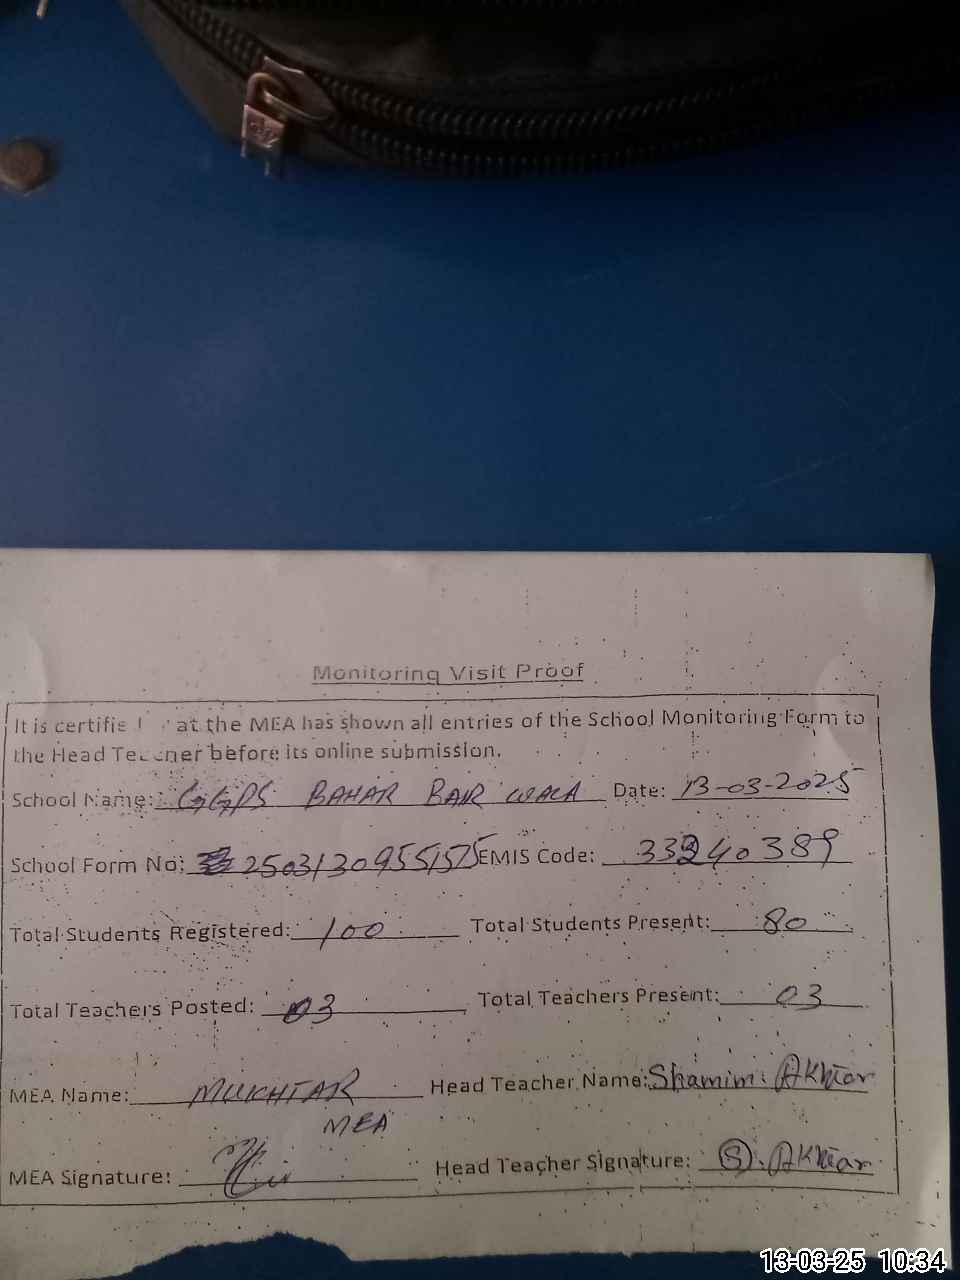 Monitoring Visit Proof
It is certifie at the MEA has shown all entries of the School Monitoring Form to
the Head Teacher before its online submission.
School Name: GGPS BAHAR BAIR WALA Date: 13-03-2025
School Form No: EMIS Code: 33240389
Total Students Registered: 100 Total Students Present: 80
Total Teachers Posted: 03 Total Teachers Present: 03
MEA Name: MUKHTAR Head Teacher Name: Shamim Akhtar
MEA
MEA Signature: Head Teacher Signature: S. Akhtar
13-03-25 10:34